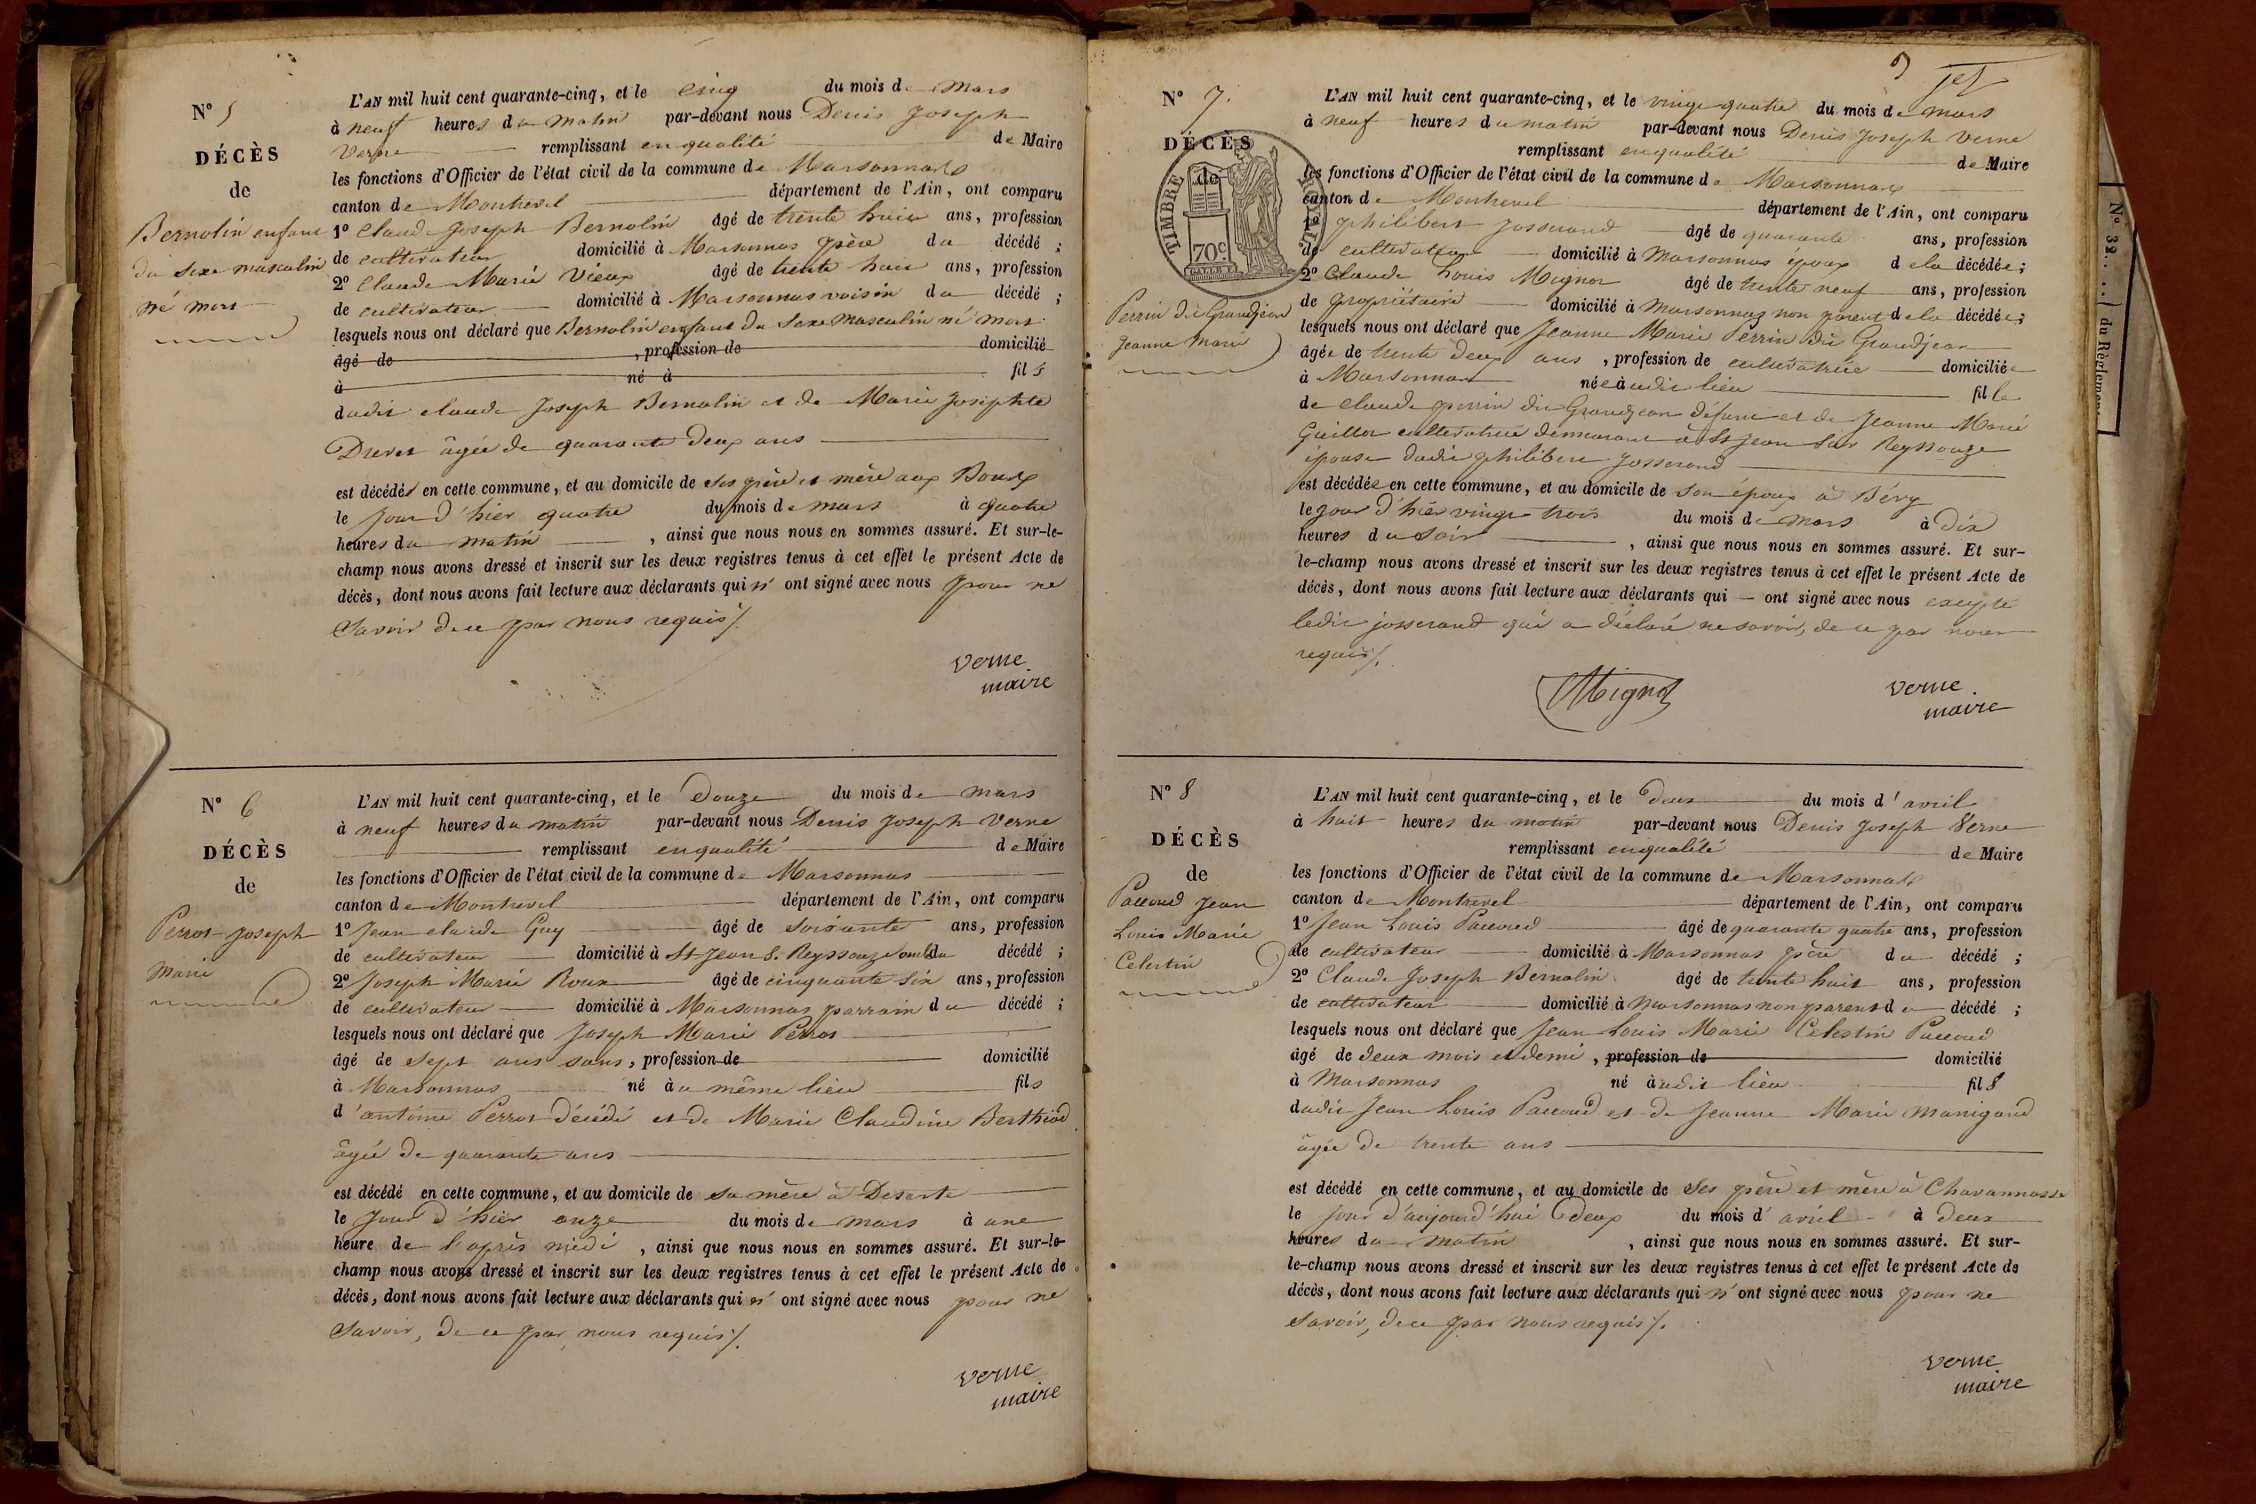 N° 5
DÉCÈS
de
Bernolin enfant
du sexe masculin
né mort
L'AN mil huit cent quarante-cinq, et le cinq du mois de mars
à neuf heures du matin par-devant nous Denis Joseph
Verne remplissant en qualité de Maire
les fonctions d'Officier de l'état civil de la commune de Marsonnas
canton de Montrevel département de l'Ain, ont comparu
1° Claude Joseph Bernolin âgé de trente huit ans, profession
de cultivateur domicilié à Marsonnas père du décédé ;
2° Claude Marie Vieux âgé de trente huit ans, profession
de cultivateur domicilié à Marsonnas voisin du décédé ;
lesquels nous ont déclaré que Bernolin enfant du Sexe Masculin né mort
âgé de , profession de domicilié
à né à fils
dudit Claude Joseph Bernolin et de Marie Josephte
Drevet âgée de quarante deux ans
est décédé en cette commune, et au domicile de ses père et mère aux
le jour d'hier quatre du mois de mars à quatre
heures du matin , ainsi que nous nous en sommes assuré. Et sur-le-
champ nous avons dressé et inscrit sur les deux registres tenus à cet effet le présent Acte de
décès, dont nous avons fait lecture aux déclarants qui n' ont signé avec nous pour ne
Savoir de ce par nous requis /.
Verne
maire
N° 6
DÉCÈS
de
Perrot Joseph
Marie
L'AN mil huit cent quarante-cinq, et le Douze du mois de mars
à neuf heures du matin par-devant nous Denis Joseph Verne
remplissant en qualité de Maire
les fonctions d'Officier de l'état civil de la commune de Marsonnas
canton de Montrevel département de l'Ain, ont comparu
1° Jean Claude Guy âgé de soixante ans, profession
de cultivateur domicilié à St Jean S. Reyssouze du décédé ;
2° Joseph Marie Roux âgé de cinquante six ans, profession
de cultivateur domicilié à Marsonnas parrain du décédé ;
lesquels nous ont déclaré que Joseph Marie Perrot
âgé de sept ans sans, profession de domicilié
à Marsonnas né au même lieu fils
d'antoine Perrot décédé et de Marie Claudine Berthiod
âgée de quarante ans
est décédé en cette commune, et au domicile de sa mère à Deserte
le jour d'hier onze du mois de mars à une
heure de l'après midi , ainsi que nous nous en sommes assuré. Et sur-le-
champ nous avons dressé et inscrit sur les deux registres tenus à cet effet le présent Acte de
décès, dont nous avons fait lecture aux déclarants qui n' ont signé avec nous pour ne
Savoir, de ce par nous requis /.
Verne
maire
N° 7.
DÉCÈS
de
TIMBRE ROYAL
70c
Perrin dit Grandjean
Jeanne Marie
L'AN mil huit cent quarante-cinq, et le vingt quatre du mois de mars
à neuf heures du matin par-devant nous Denis Joseph Verne
remplissant en qualité de Maire
les fonctions d'Officier de l'état civil de la commune de Marsonnas
canton de Montrevel département de l'Ain, ont comparu
1° philibert Josserand âgé de quarante ans, profession
de cultivateur domicilié à Marsonnas époux de la décédée ;
2° Claude Louis Mignot âgé de trente neuf ans, profession
de propriétaire domicilié à Marsonnas non parent de la décédée ;
lesquels nous ont déclaré que Jeanne Marie Perrin dit Grandjean
âgée de trente deux ans , profession de cultivatrice domiciliée
à Marsonnas née audit lieu fille
de Claude perrin dit Grandjean défunt et de Jeanne Marie
Guillot cultivatrice demeurant à St Jean sur Reyssouze
épouse dudit philibert Josserand
est décédée en cette commune, et au domicile de son époux à Béry
le jour d'hier vingt trois du mois de mars à dix
heures du soir , ainsi que nous nous en sommes assuré. Et sur-
le-champ nous avons dressé et inscrit sur les deux registres tenus à cet effet le présent Acte de
décès, dont nous avons fait lecture aux déclarants qui — ont signé avec nous excepté
ledit josserand qui a déclaré ne savoir, de ce par nous
requis /.
Mignot
Verne
maire
N° 8
DÉCÈS
de
Paccoud Jean
Louis Marie
Celestin
L'AN mil huit cent quarante-cinq, et le deux du mois d'avril
à huit heures du matin par-devant nous Denis Joseph Verne
remplissant en qualité de Maire
les fonctions d'Officier de l'état civil de la commune de Marsonnas
canton de Montrevel département de l'Ain, ont comparu
1° Jean Louis Paccoud âgé de quarante quatre ans, profession
de cultivateur domicilié à Marsonnas père du décédé ;
2° Claude Joseph Bernolin âgé de trente huit ans, profession
de cultivateur domicilié à Marsonnas non parent du décédé ;
lesquels nous ont déclaré que Jean Louis Marie Celestin Paccoud
âgé de deux mois et demi , profession de domicilié
à Marsonnas né audit lieu fils
dudit Jean Louis Paccoud et de Jeanne Marie Manigand
âgée de trente ans
est décédé en cette commune, et au domicile de ses père et mère à
le jour d'aujourd'hui deux du mois d'avril à deux
heures du matin , ainsi que nous nous en sommes assuré. Et sur-
le-champ nous avons dressé et inscrit sur les deux registres tenus à cet effet le présent Acte de
décès, dont nous avons fait lecture aux déclarants qui n' ont signé avec nous pour ne
savoir, de ce par nous requis /.
Verne
maire
N° 32.... du Règlement